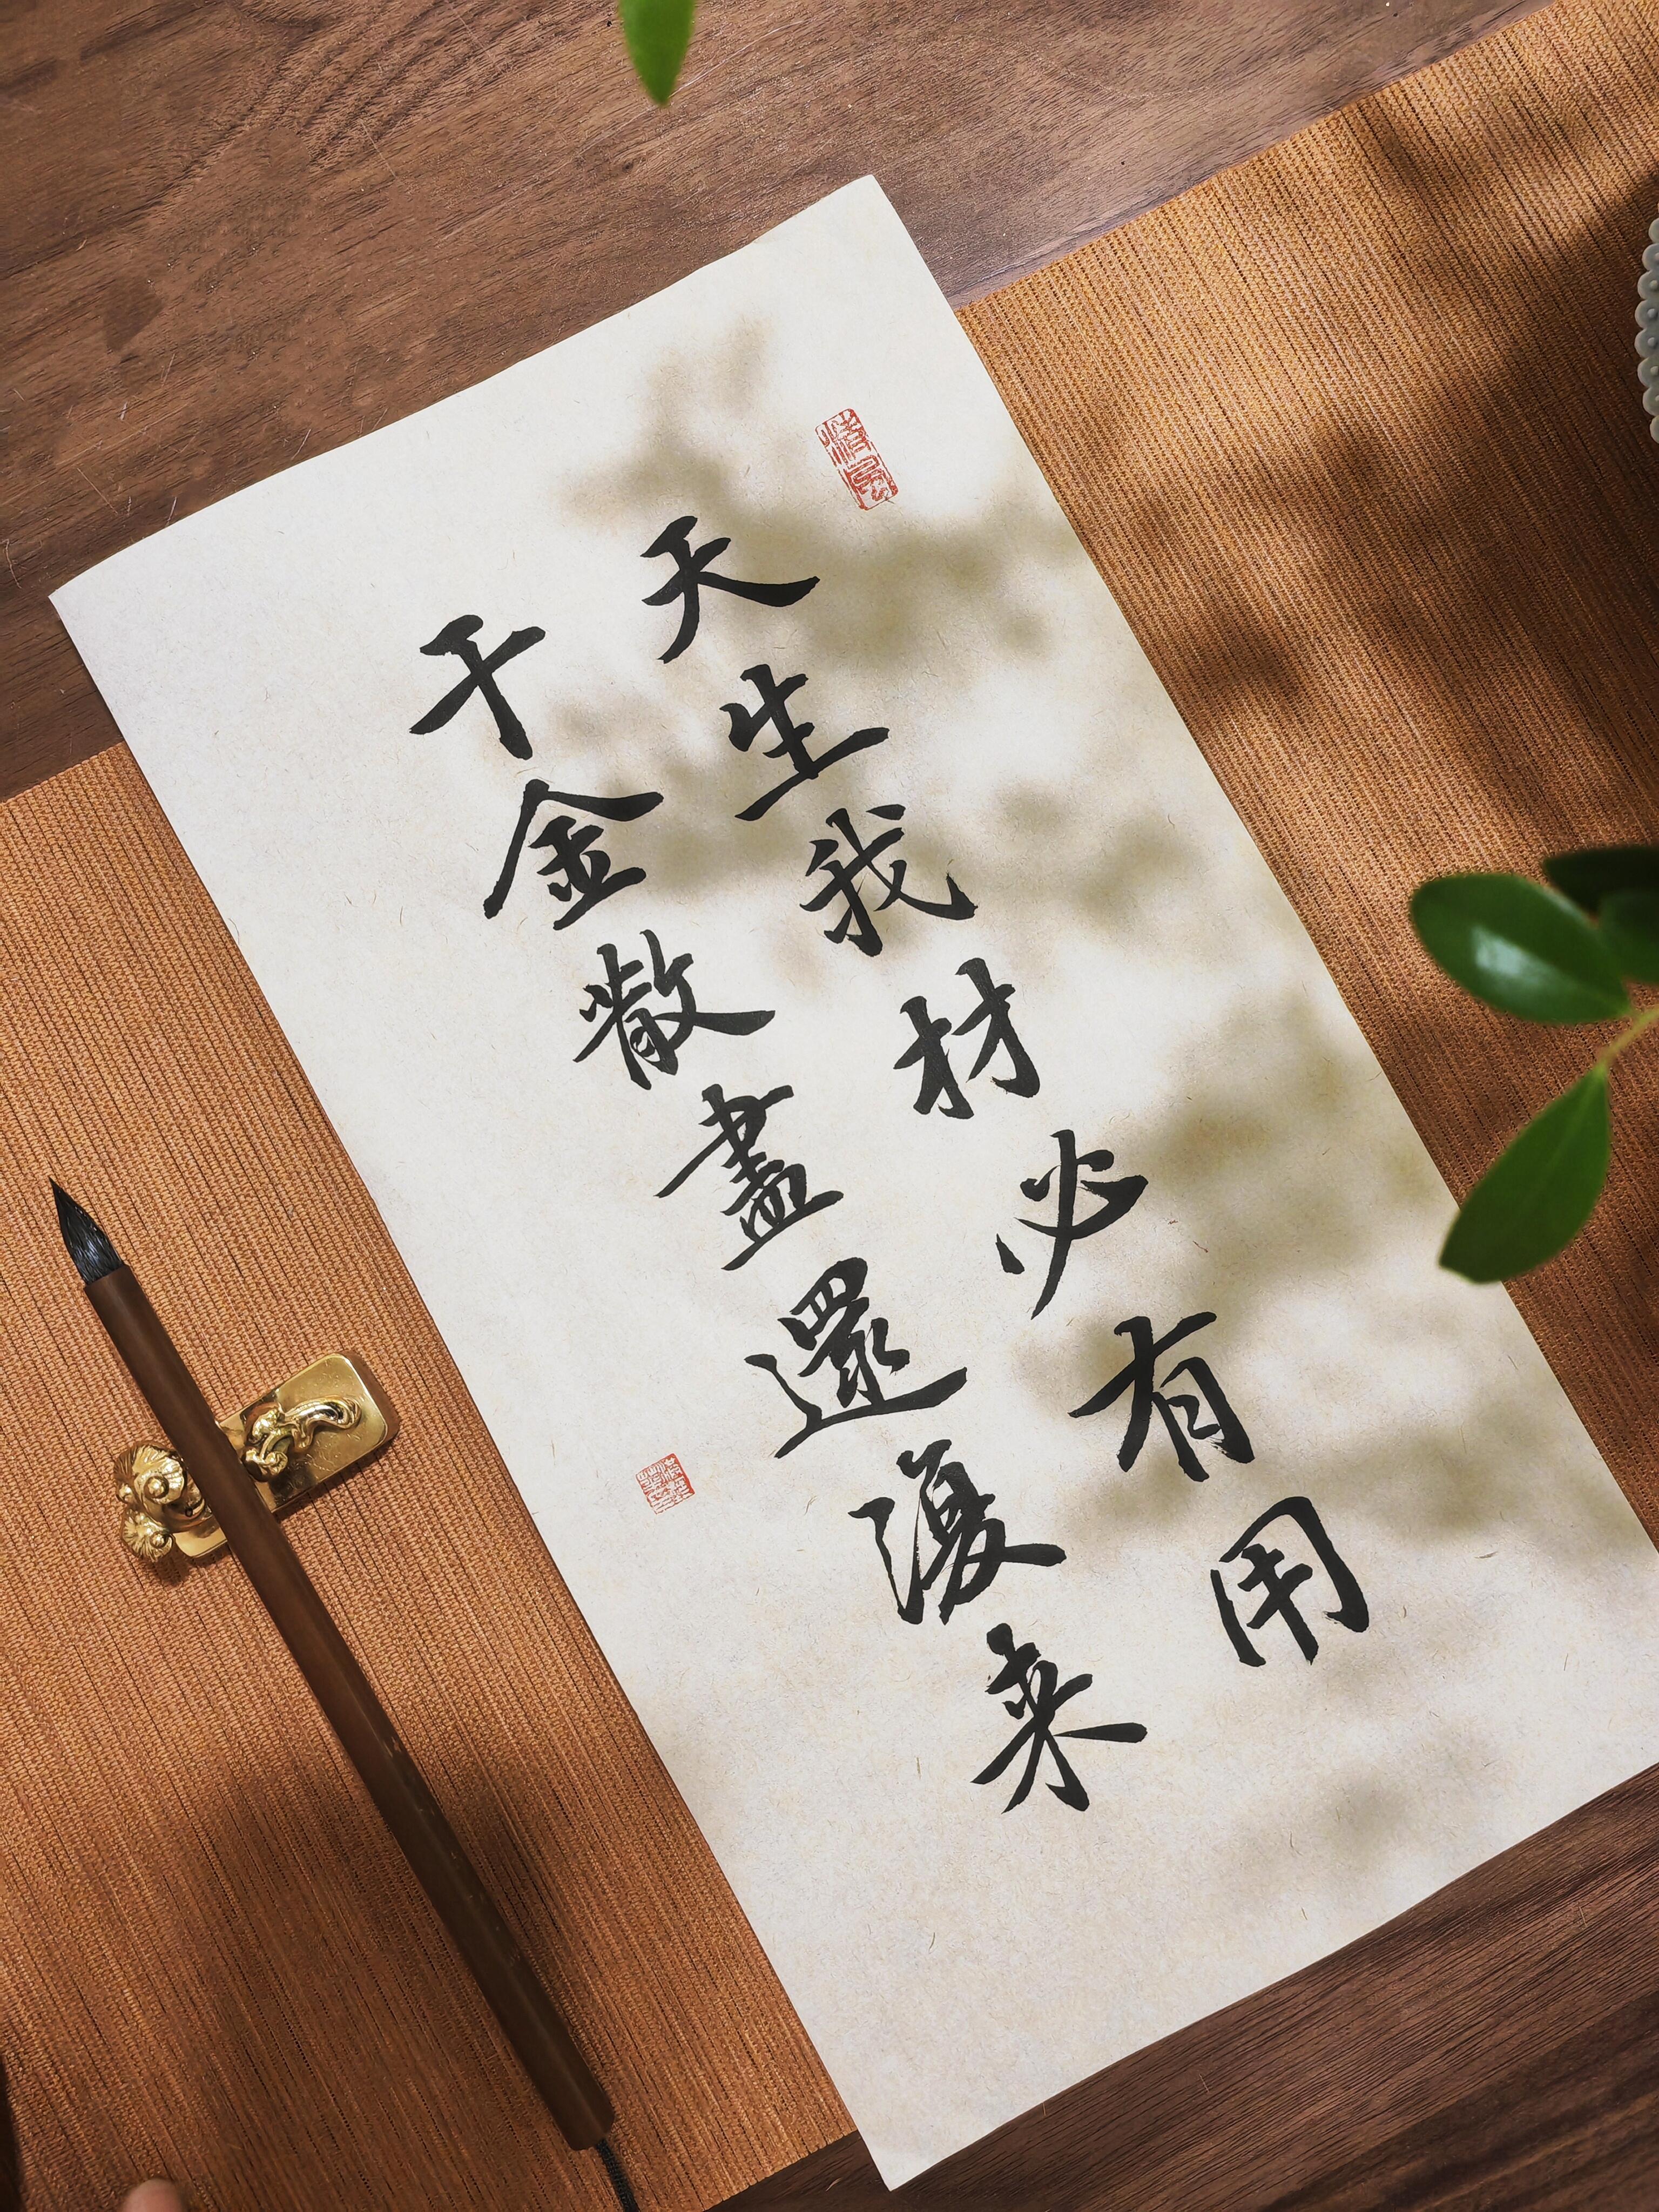 天生我材必有用
千金散盡還復来
清風